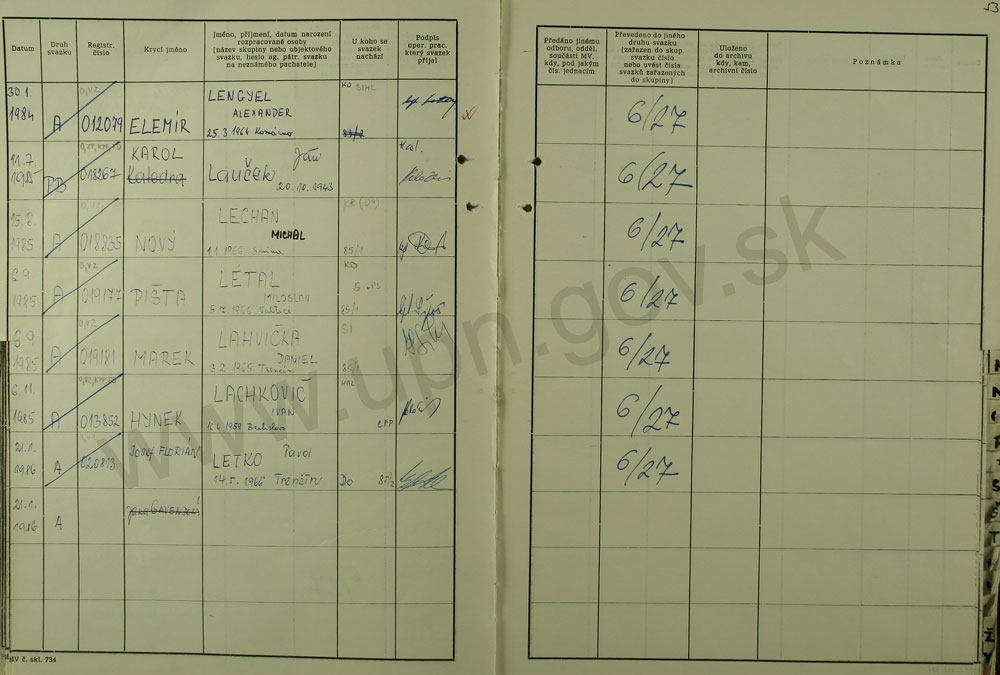 53
Datum
Druh
svazku
Registr.
číslo
Krycí jméno
Jméno, příjmení, datum narození
rozpracované osoby
(název skupiny nebo objektového
svazku, heslo ag. pátr. svazku
na neznámého pachatele)
U koho se
svazek
nachází
Podpis
oper. prac.
který svazek
přijal
Předáno jinému
odboru, odděl.
součásti MV,
kdy, pod jakým
čís. jednacím
Převedeno do jiného
druhu svazku
(zařazen do skup.
svazku číslo
nebo uvést čísla
svazků zařazených
do skupiny)
Uloženo
do archivu
kdy, kam,
archivní číslo
Poznámka
30.1.
1984
A
012079
ELEMÍR
LENGYEL
ALEXANDER
25.3 1964 Komárno
KO SIHL
6/27
11.7
1985
PB
018267
KAROL
Katedra
Ján
Lauček
20.10.1943
Kal.
6/27
15.8.
1985
A
018835
NOVÝ
LECHAN
MICHAL
1.1 1966 Snina
KR (D9)
85/1
6/27
6.9
1985
A
019177
PIŠTA
LETAL
MILOSLAV
KO
85/1
6/27
6.9
1985
A
019181
MAREK
LAHVIČKA
DANIEL
3.2 1965 Trenčín
SI
85/1
6/27
6.11.
1985
A
013852
HYNEK
LACHKOVIČ
IVAN
1959 Bratislava
6/27
21.1.
1986
A
JOSEF FLORIÁN
LETKO
Pavol
14.5. 1966 Trenčín
Do 85/2
6/27
21.1.
1986
A
MV č. skl. 734
www.upn.gov.sk